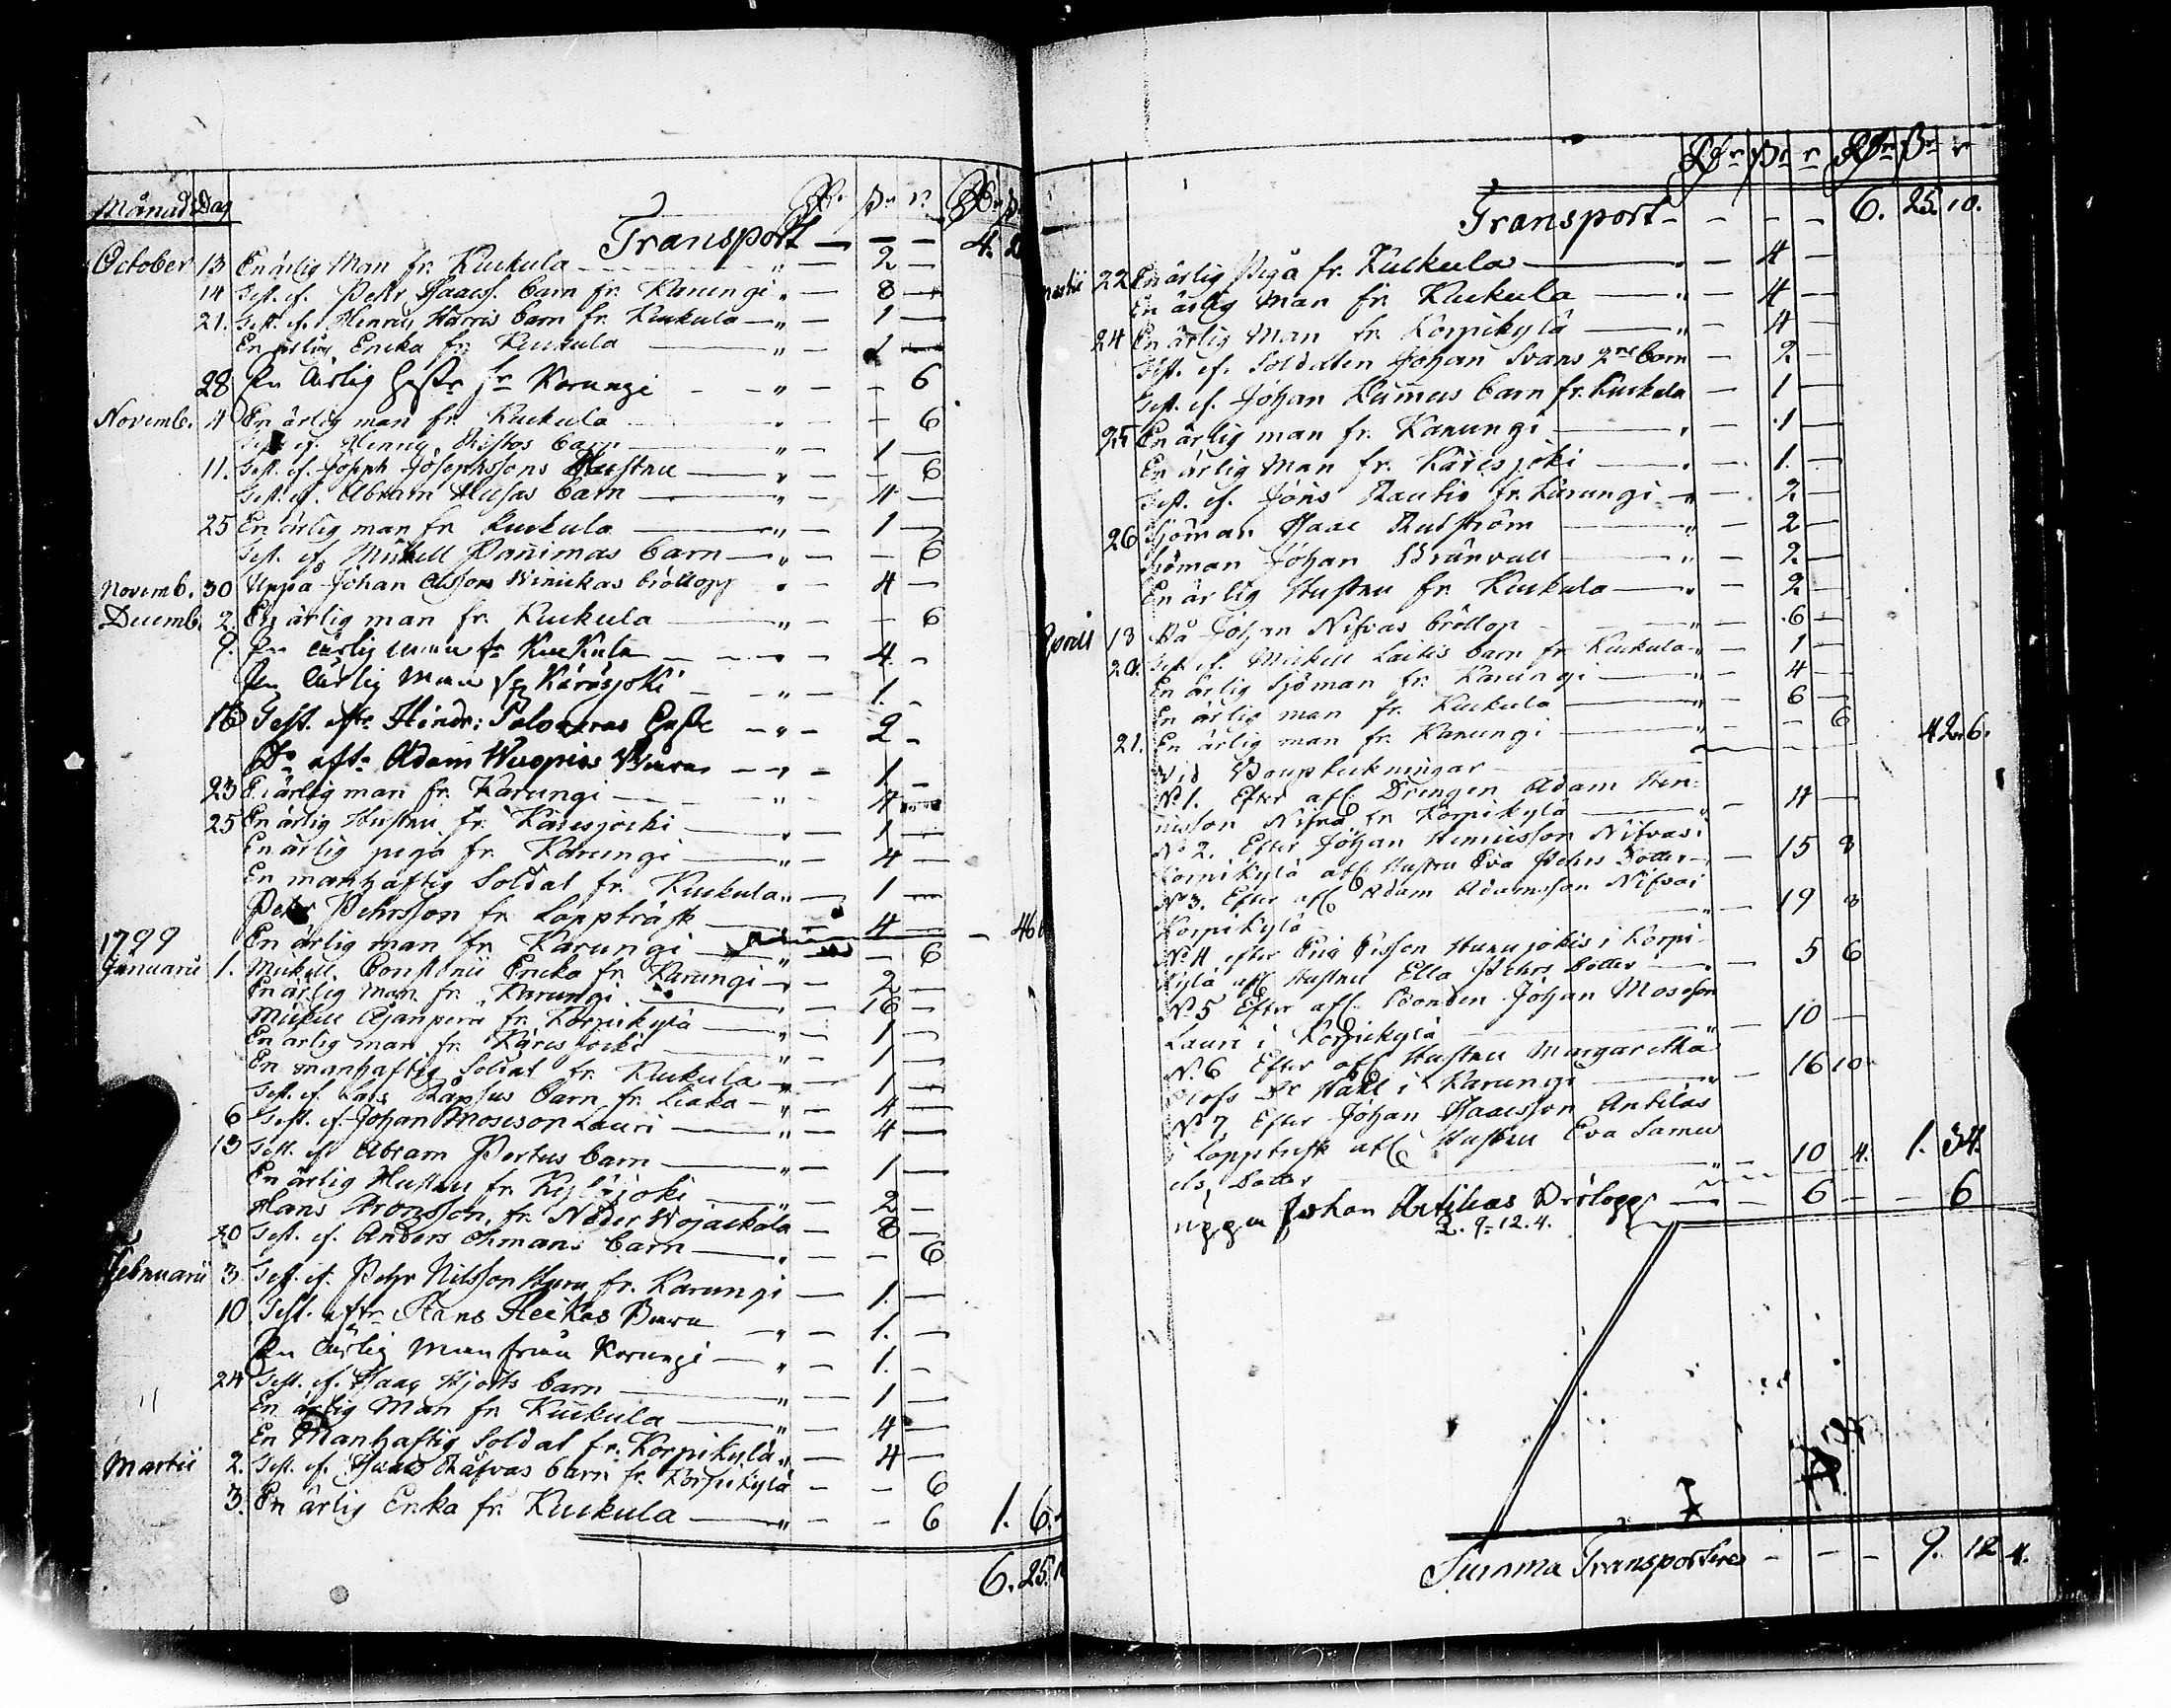 Månad Dag Rdr ß r Rdr ß
Transport — — — 4.
October 13 En ärlig Man fr. Kuckula " — 2 —
14 Test. ef. Pehr Isaacs. barn fr. Karungi " — 8 —
21. Test. ef. Henric Harris barn fr. Kuckula " — 1 —
En ärlig Encka fr. Kuckula " — 1 —
28 En ärlig fr Korungi " — — 6
Novemb. 4 En ärlig man fr. Kuckula " — — 6
Test. ef. Henric barn " — 1 —
11. Test. ef. Joseph Josephssons Hustru " — — 6
Test. ef. Abram Husas barn " — 4 —
25 En ärlig man fr. Kuckula " — 1 —
Test. ef. Mickell Pannimas barn " — — 6
Novemb. 30 Uppå Johan Olssons Winickas bröllopp " — 4 —
Decemb. 2. En ärlig man fr. Kuckula " — — 6
9. En ärlig man fr KucKula " — 4. -
En ärlig Man fr Karisjoki " — 1. -
16 Test. eftr Hindr: Palovaras " — 2 -
Do eftr Adam Wuopios Barn " — 1 -
23 En ärlig man fr. Karungi " — 4 —
25 En ärlig Hustru fr. Karisjocki " — 1 —
En ärlig piga fr. Karungi " — 4 —
En manhaftig Soldat fr. Kuckula " — 1 —
Pehr Pehrsson fr. Lappträsk — 4 — — 46
1799 En ärlig man fr. Karungi " — — 6
Januarii 1. Mickell Encka fr. Karungi — 2 —
En ärlig man fr. Karungi — 16 —
Mickell Äjänperä fr. Korpikylä " — 1 —
En ärlig man fr. Karisjocki " — 1 —
En manhaftig Soldat fr. Kuckula " — 1 —
Test. ef. Lars barn fr. Liaka " — 4 —
6 Test. ef. Johan Moseson Lauri " — 4 —
13 Test. ef. Abram Pertus barn " — 1 —
En ärlig Hustru fr. " — 2 —
Hans Aronsson, fr. Neder Wojackala — 8 —
20 Test. ef. Anders Öhmans barn " — — 6
Februarii 3. Test. ef. Pehr Nilsson fr. Karungi — 1. —
10 Test. eftr Hans Heikas Barn " — 1. —
En ärlig Man från Korungi " — 1. -
24 Test. ef. Isaac Hjorts barn " — 1 —
En ärlig Man fr. Kuckula " — 4 —
En Manhaftig Soldat fr. Korpikylä " — 4 —
Martii 2. Test. ef. barn fr. Korpikylä — — 6
3. En ärlig Encka fr. Kuckula " — — 6 1. 6.
6. 25.
Rdr ß r Rdr ß r
Transport — — — — 6. 25. 10.
22 En ärlig Piga fr. Kuckula " — 4 —
En ärlig Man fr. Kuckula " — 4 —
24 En ärlig Man fr. Korpikylä " — 4 —
Test. ef. Soldaten Johan Svans 2ne barn — 2 —
Test. ef. Johan barn fr. Kuckula — 1 —
25 En ärlig man fr. Karungi " — 1 —
En ärlig Man fr. Karisjoki " — 1. —
Test. ef. Jöns Rautio fr. Karungi " — 2 —
26 Sjöman Isaac " — 2 —
Sjöman Johan Brännvall " — 2 —
En ärlig Hustru fr. Kuckula " — 2 —
13 På Johan Nifvas bröllop " — 6 —
20. Test. ef. Mickell Laitis barn fr. Kuckula " — 1 —
En ärlig Sjöman fr. Karungi " — 4 —
En ärlig man fr. Kuckula " — 6 —
21. En ärlig man fr. Karungi " — — 6 42. 6.
Vid
No 1. Efter afl. Drengen Adam Hen-
ricsson Nifva fr. Korpikylä " — 4 —
No 2. Efter Johan Henricsson Nifvas i
Korpikylä afl. Hustru Eva Pehrs Dotter — 15 8
No 3. Efter afl. Adam Adamsson Nifva i
Korpikylä " — 19 8
No 4 efter Eric Ersson i Korpi-
kylä afl. Hustru Ella Pehrs Dotter — 5 6
No 5 Efter afl. Bonden Johan Moseson
Lauri i Korpikylä " — 10 —
No. 6 Efter afl. Hustru Margaretha
i Karungi " — 16 10
No 7 Efter Johan Isaacsson Antilas
i Lappträsk afl. Hustru Eva Samu
els Dotter " — 10 4. 1. 34.
uppa Johan Antilas Brölopp — 6 — — 6
2. 9. 12. 4.
Summa Transporteras — — — 9. 12 4.